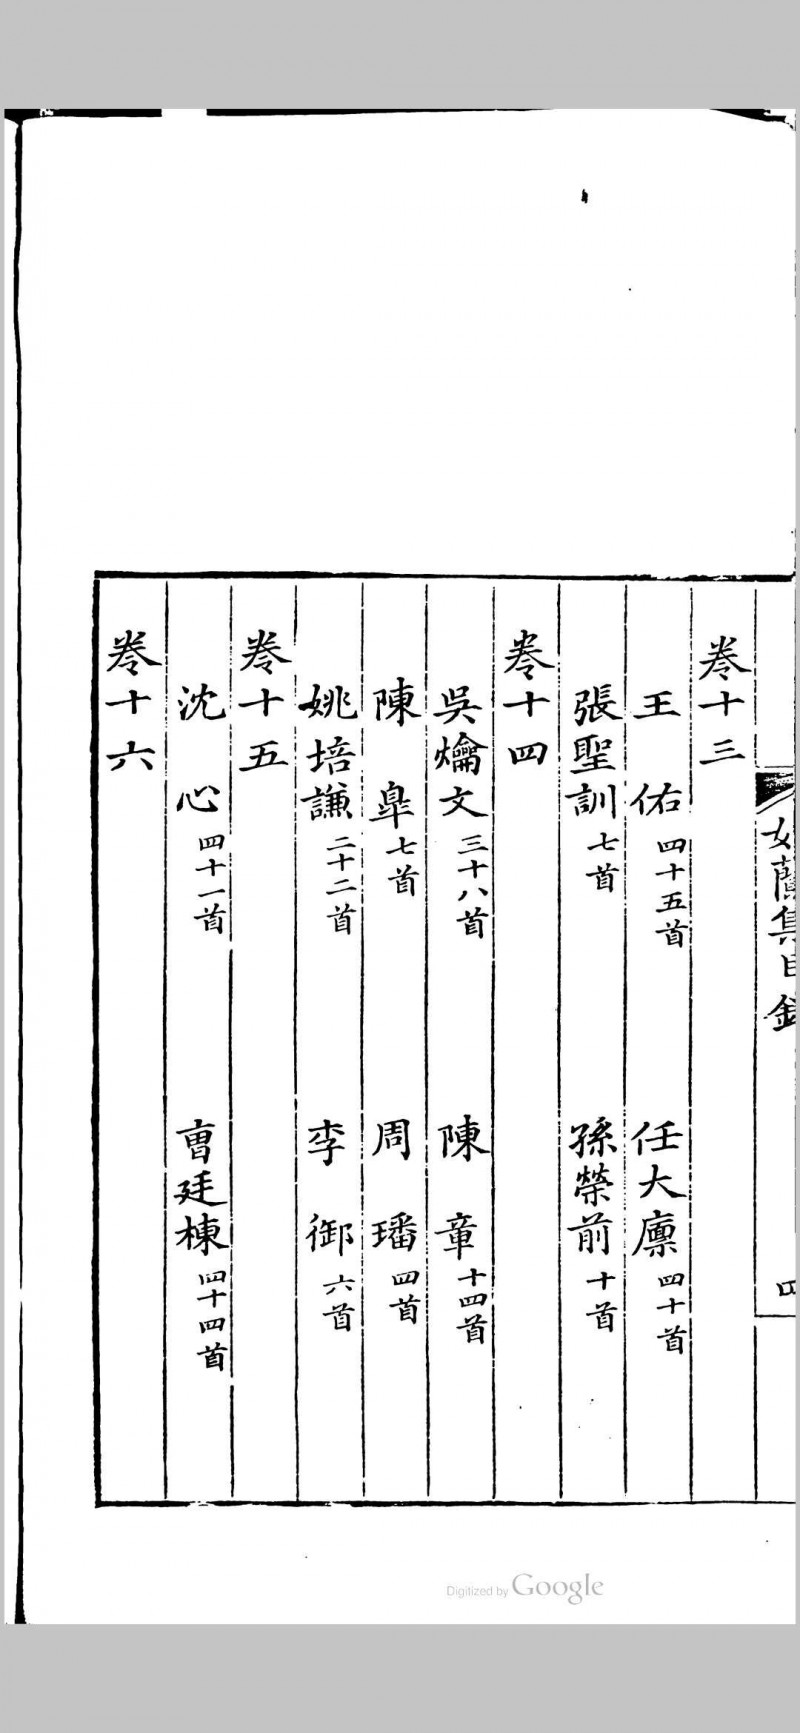 集目錄
四
卷十三
王佑 四十五首 任大廪 四十首
張聖訓 七首 孫榮前 十首
卷十四
吳爚文 三十八首 陳章 十四首
陳臯 七首 周璠 四首
姚培謙 二十二首 李御 六首
卷十五
沈心 四十一首 曹廷棟 四十四首
卷十六
Digitized by Google